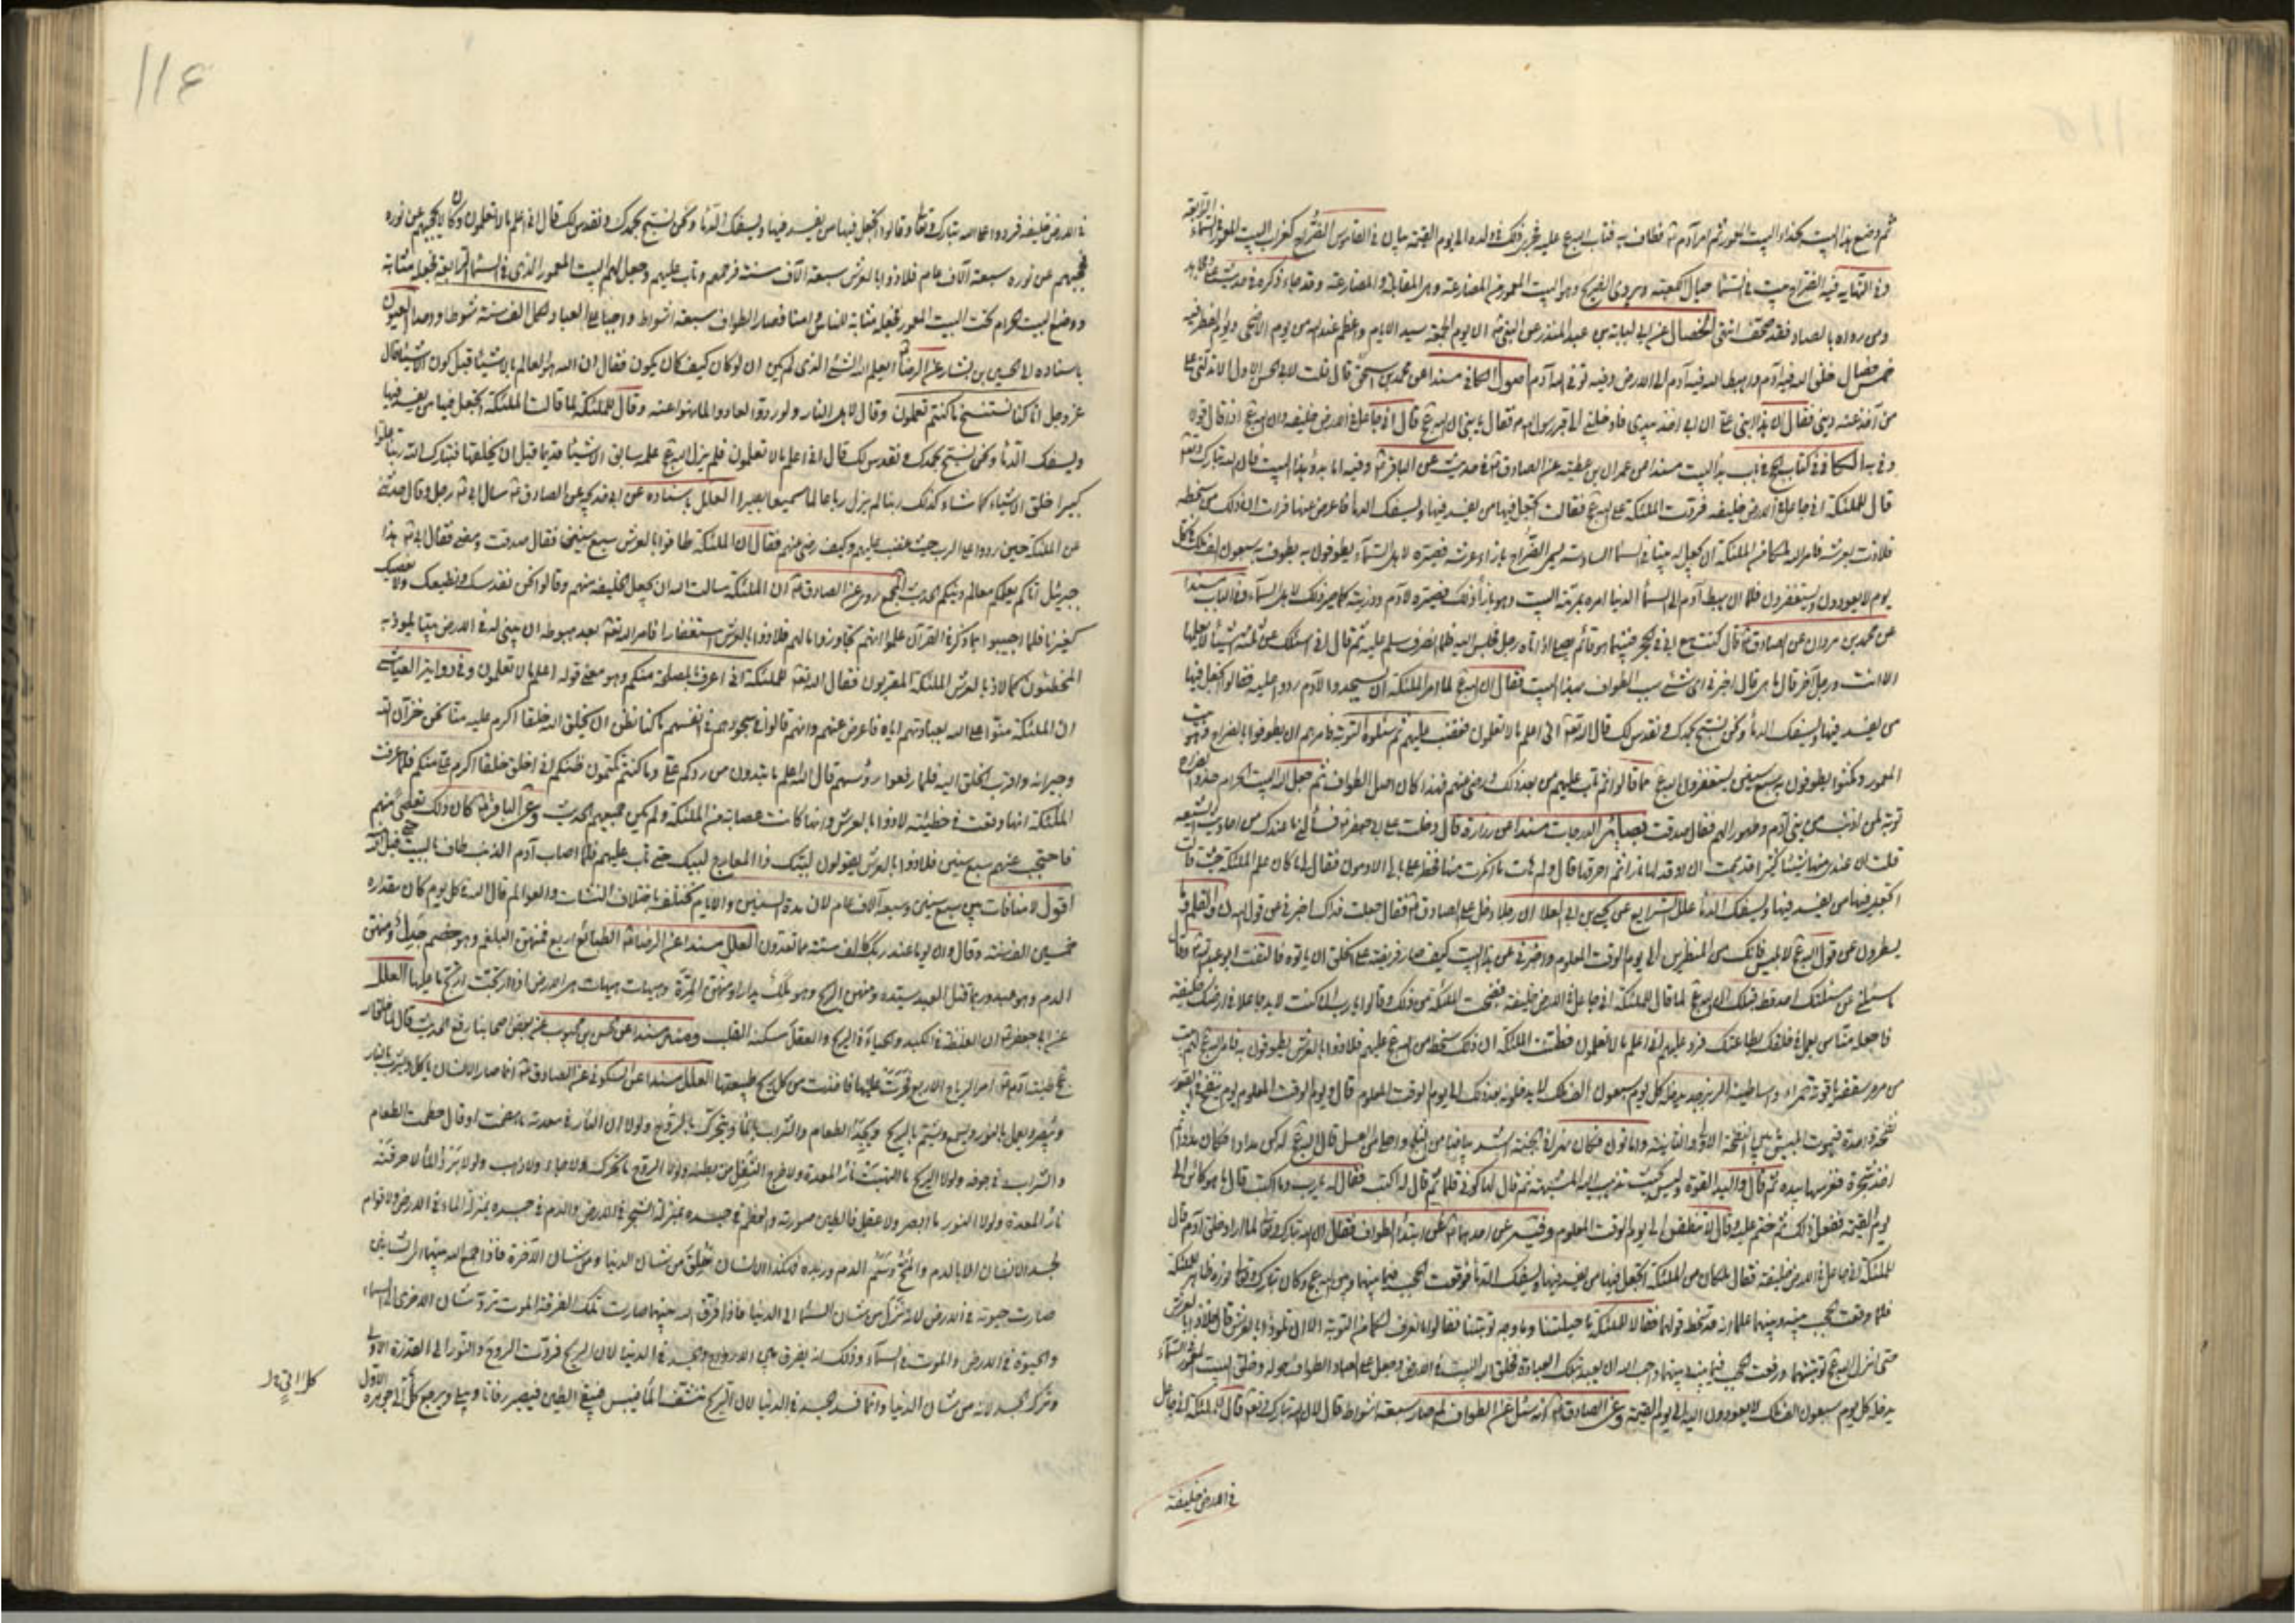 ثم وضع هذا البيت بحذاء البيت المعمور ثم امر آدم فطاف به فتاب الله عليه فجرى ذلك في ولده الى يوم القيمة بيان في القاموس الضراح كغراب البيت المعمور في السماء الرابعة
وفي النهايه فيه الضراح بيت في السماء حيال الكعبة ويروى الضريح وهو البيت المعمور من المضارحة وهي المقابلة والمضارعة وقد جاء ذكره في حديث علي ومجاهد
ومن رواه بالصاد فقد صحف انتهى الخصال عن ابي لبابة بن عبد المنذر عن النبي ان يوم الجمعة سيد الايام واعظم عند الله من يوم الاضحى ويوم الفطر فيه
خمس خصال خلق الله فيه آدم واهبط الله فيه آدم الى الارض وفيه توفى الله آدم اصول الكافي مسندا عن محمد بن اسحق قال قلت لابي الحسن الاول الا تدلني على
من آخذ عنه ديني فقال هذا ابني علي ان ابي اخذ بيدي فادخلني الى قبر رسول الله فقال يا بني ان الله قال اني جاعل في الارض خليفه وان الله اذا قال قولا
وفي به الكافي في كتاب الحج في باب بدأ البيت مسندا عن عمران بن عطيه عن الصادق في حديث عن الباقر وفيه اما بدؤ هذا البيت فان الله تبارك وتعالى
قال للملئكة اني جاعل في الارض خليفه فردت الملئكة على الله فقالت اتجعل فيها من يفسد فيها ويسفك الدماء فاعرض عنها فرات ان ذلك من سخطه
فلاذت بعرشه فامر الله ملكا من الملئكة ان يجعل له بيتا في السماء السادسة يسمى الضراح بازاء عرشه فصيره لاهل السماء يطوفون به يطوف به سبعون الف ملك في كل
يوم لا يعودون ويستغفرون فلما ان هبط آدم الى السماء الدنيا امره بمرمة البيت وهو بازاء ذلك فصيره لآدم وذريته كما صير ذلك لاهل السماء وفي الباب مسندا
عن محمد بن مروان عن الصادق قال كنت مع ابي في الحجر فبينما هو قائم يصلي اذ اتاه رجل فجلس اليه فلما انصرف سلم عليه ثم قال اني اسئلك عن ثلثة اشياء لا يعلمها
الا انت ورجل آخر قال ما هي قال اخبرني اي شئ سبب الطواف بهذا البيت فقال ان الله لما امر الملئكة ان يسجدوا لآدم ردوا عليه فقالوا اتجعل فيها
من يفسد فيها ويسفك الدماء ونحن نسبح بحمدك ونقدس لك قال الله تعالى اني اعلم ما لا تعلمون فغضب عليهم ثم سئلوه التوبة فامرهم ان يطوفوا بالضراح وهو البيت
المعمور ومكثوا يطوفون به سبع سنين يستغفرون الله مما قالوا ثم تاب عليهم من بعد ذلك ورضي عنهم فهذا كان اصل الطواف ثم جعل الله البيت الحرام حذو الضراح
توبة لمن اذنب من بني آدم وطهورا لهم فقال صدقت بصائر الدرجات مسندا عن زرارة قال دخلت على ابي جعفر فسألني ما عندك من احاديث الشيعه
قلت ان عندي منها شيئا كثيرا قد هممت ان اوقد لها نارا ثم احرقها قال ولم هات ما انكرت منها فخطر على بالي الادمون فقال لي ما كان علم الملئكة حيث قالت
اتجعل فيها من يفسد فيها ويسفك الدماء علل الشرايع عن يحيى بن ابي العلا ان رجلا دخل على الصادق فقال جعلت فداك اخبرني عن قول الله ن والقلم وما
يسطرون وعن قول الله لابليس فانك من المنظرين الى يوم الوقت المعلوم واخبرني عن هذا البيت كيف صار فريضة على الخلق ان ياتوه فالتفت ابو عبد الله وقال
ما سئلني عن مسئلتك احد قط قبلك ان الله لما قال للملئكة اني جاعل في الارض خليفة فضجت الملئكة من ذلك وقالوا يا رب ان كنت لابد جاعلا في ارضك خليفة
فاجعله منا من يعمل في خلقك بطاعتك فرد عليهم اني اعلم ما لا تعلمون فظنت الملئكة ان ذلك سخط من الله عليهم فلاذوا بالعرش يطوفون به فامر الله لهم ببيت
من مرمر سقفه ياقوتة حمراء واساطينه الزبرجد يدخله كل يوم سبعون الف ملك لا يدخلونه بعد ذلك الى يوم الوقت المعلوم قال ويوم الوقت المعلوم يوم ينفخ في الصور
نفخة واحدة فيموت ابليس بين النفخة الاولى والثانية واما نون فكان نهرا في الجنة اشد بياضا من الثلج واحلى من العسل قال الله له كن مدادا فكان مدادا ثم
اخذ شجرة فغرسها بيده ثم قال واليد القوة وليس حيث تذهب اليه المشبهة ثم قال لها كوني قلما ثم قال له اكتب فقال له يا رب وما اكتب قال ما هو كائن الى
يوم القيمة ففعل ذلك ثم ختم عليه وقال لا تنطقن الى يوم الوقت المعلوم وفيه عن احدهما عن ابتداء الطواف فقال ان الله تبارك وتعالى لما اراد خلق آدم قال
للملئكة اني جاعل في الارض خليفة فقال ملكان من الملئكة اتجعل فيها من يفسد فيها ويسفك الدماء فوقعت الحجب فيما بينهما وبين الله وكان تبارك وتعالى نوره ظاهرا للملئكة
فلما وقعت الحجب بينه وبينهما علما انه قد سخط قولهما فقالا للملئكة ما حيلتنا وما وجه توبتنا فقالوا ما نعرف لكما من التوبة الا ان تلوذا بالعرش قال فلاذا بالعرش
حتى انزل الله توبتهما ورفعت الحجب فيما بينه وبينهما واحب الله ان يعبد بتلك العبادة فخلق الله البيت في الارض وجعل على العباد الطواف حوله وخلق البيت المعمور في السماء
يدخله كل يوم سبعون الف ملك لا يعودون اليه الى يوم القيمة وعن الصادق انه سئل عن الطواف لم صار سبعة اشواط قال لان الله تبارك وتعالى قال للملئكة اني جاعل
في الارض خليفة
116
في الارض خليفه فردوا على الله تبارك وتعالى وقالوا اتجعل فيها من يفسد فيها ويسفك الدماء ونحن نسبح بحمدك ونقدس لك قال اني اعلم ما لا تعلمون وكان لا يحجبهم عن نوره
فحجبهم عن نوره سبعة آلاف عام فلاذوا بالعرش سبعة آلاف سنة فرحمهم وتاب عليهم وجعل لهم البيت المعمور الذي في السماء الرابعة فجعله مثابة
ووضع البيت الحرام تحت البيت المعمور فجعله مثابة للناس وامنا فصار الطواف سبعة اشواط واجبا على العباد لكل الف سنة شوطا واحدا العيون
باسناده الى الحسين بن بشار عن الرضا ايعلم الله الشئ الذي لم يكن ان لو كان كيف كان يكون فقال ان الله هو العالم بالاشياء قبل كون الاشياء قال
عز وجل انا كنا نستنسخ ما كنتم تعملون وقال لاهل النار ولو ردوا لعادوا لما نهوا عنه وقال للملئكة لما قالت الملئكة اتجعل فيها من يفسد فيها
ويسفك الدماء ونحن نسبح بحمدك ونقدس لك قال اني اعلم ما لا تعلمون فلم يزل الله علمه سابق الاشياء قديما قبل ان يخلقها فتبارك الله ربنا علوا
كبيرا خلق الاشياء كما شاء كذلك ربنا لم يزل ربا عالما سميعا بصيرا العلل باسناده عن ابي خديجه عن الصادق سال ابي رجل وقال حدثني
عن الملئكة حين ردوا على الرب حيث غضب عليهم وكيف رضي عنهم فقال ان الملئكة طافوا بالعرش سبع سنين فقال صدقت ومضى فقال ابي هذا
جبرئيل اتاكم يعلمكم معالم دينكم الحديث المجمع روي عن الصادق ان الملئكة سالت الله ان يجعل الخليفه منهم وقالوا نحن نقدسك ونطيعك ولا نعصيك
كغيرنا فلما اجيبوا بما ذكر في القرآن علموا انهم تجاوزوا ما لهم فلاذوا بالعرش استغفارا فامر الله تعالى بعد هبوطه ان يبنى له في الارض بيتا يلوذ به
المخطئون كما لاذ بالعرش الملئكة المقربون فقال الله تعالى للملئكة اني اعرف بالمصلحة منكم وهو معنى قوله اعلم ما لا تعلمون وفي رواية العياشي
ان الملئكة منوا على الله بعبادتهم اياه فاعرض عنهم وانهم قالوا في سجودهم في انفسهم ما كنا نظن ان يخلق الله خلقا اكرم عليه منا نحن خزان الله
وجيرانه واقرب الخلق اليه فلما رفعوا رؤسهم قال الله اعلم ما تبدون من ردكم علي وما كنتم تكتمون ظنكم اني لا اخلق خلقا اكرم علي منكم فلما عرفت
الملئكة انها وقعت في خطيئة لاذوا بالعرش وانها كانت عصابة من الملئكة ولم يكن جميعهم الحديث وعن الباقر كان ذلك تعصي منهم
فاحتجب عنهم سبع سنين فلاذوا بالعرش يقولون لبيك ذا المعارج لبيك حتى تاب عليهم فلما اصاب آدم الذنب طاف بالبيت حتى قبل الله
اقول لا منافات بين سبع سنين وسبعة آلاف عام لان مدة السنين والايام تختلف باختلاف النشات والعوالم قال الله في كل يوم كان مقداره
خمسين الف سنة وقال وان يوما عند ربك كالف سنة مما تعدون العلل مسندا عن الرضا الطبائع اربع فمنهن البلغم وهو خصم جدل ومنهن
الدم وهو عبد وربما قتل العبد سيده ومنهن الريح وهو ملك يدارا ومنهن المرة وهيهات هيهات هي الارض اذا ارتجت ارتج ما عليها العلل
عن ابي جعفر ان الغلظة في الكبد والحياء في الريح والعقل مسكنه القلب ومنه مسندا عن الحسن بن محبوب عن بعض اصحابنا رفع الحديث قال لما خلق الله
طينة آدم امر الرياح الاربع فجرت عليها فاخذت من كل ريح طبيعتها العلل مسندا عن السكوني عن الصادق انما صار الانسان ياكل ويشرب بالنار
ويبصر ويعمل بالنور ويسمع ويشم بالريح ويجد الطعام والشراب بالماء ويتحرك بالروح ولولا ان النار في معدته ما هضمت او قال حطمت الطعام
والشراب في جوفه ولولا الريح ما التهبت نار المعدة ولا خرج الثفل من بطنه ولولا الروح ما تحرك ولا جاء ولا ذهب ولولا برد الماء لاحرقته
نار المعدة ولولا النور ما ابصر ولا عقل فالطين صورته والعظم في جسده بمنزلة الشجر في الارض والدم في جسده بمنزلة الماء في الارض ولا قوام
لجسد الانسان الا بالدم والمخ دسم الدم وزبده فهكذا الانسان خلق من شان الدنيا ومن شان الآخرة فاذا جمع الله بينهما
صارت حيوته في الارض لانه نزل من شان السماء الى الدنيا فاذا فرق الله بينهما صارت تلك الفرقة الموت ترد شان الاخرى الى السماء
والحيوة في الارض والموت في السماء وذلك انه يفرق بين الارواح والجسد في الدنيا لان الريح فردت الروح والنور الى القدرة الاولى
وترك الجسد لانه من شان الدنيا وانما فسد الجسد في الدنيا لان الريح تنشف الماء فييبس فيبقى الطين فيصير رفاتا ويبلى ويرجع كل الى جوهره الاول